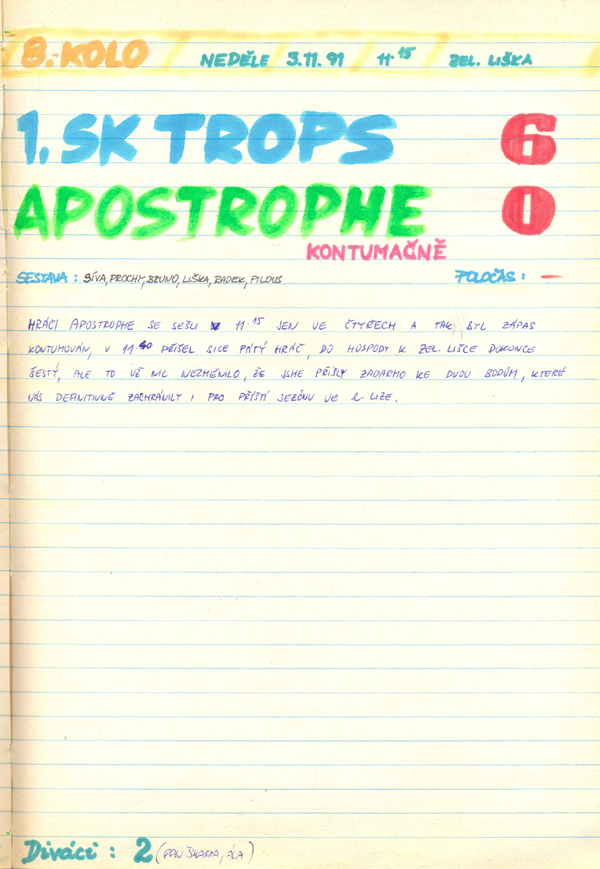 8. KOLO NEDĚLE 3.11.91 11.15 ŽEL. LIŠKA
1. SK TROPS 6
APOSTROPHE 0
KONTUMAČNĚ
SESTAVA : SÍVA, PROCHY, BRUNO, LIŠKA, RADEK, PILOUS POLOČAS : —
HRÁČI APOSTROPHE SE SEŠLI V 11.15 JEN VE ČTYŘECH A TAK BYL ZÁPAS
KONTUMOVÁN, V 11.40 PŘIŠEL SICE PÁTÝ HRÁČ, DO HOSPODY K ŽEL. LIŠCE DOKONCE
ŠESTÝ, ALE TO UŽ NIC NEZMĚNILO, ŽE JSME PŘIŠLY ZADARMO KE DVOU BODŮM, KTERÉ
NÁS DEFINITIVNĚ ZACHRÁNILY I PRO PŘÍŠTÍ SEZÓNU VE LIZE.
Diváci : 2 (PAN